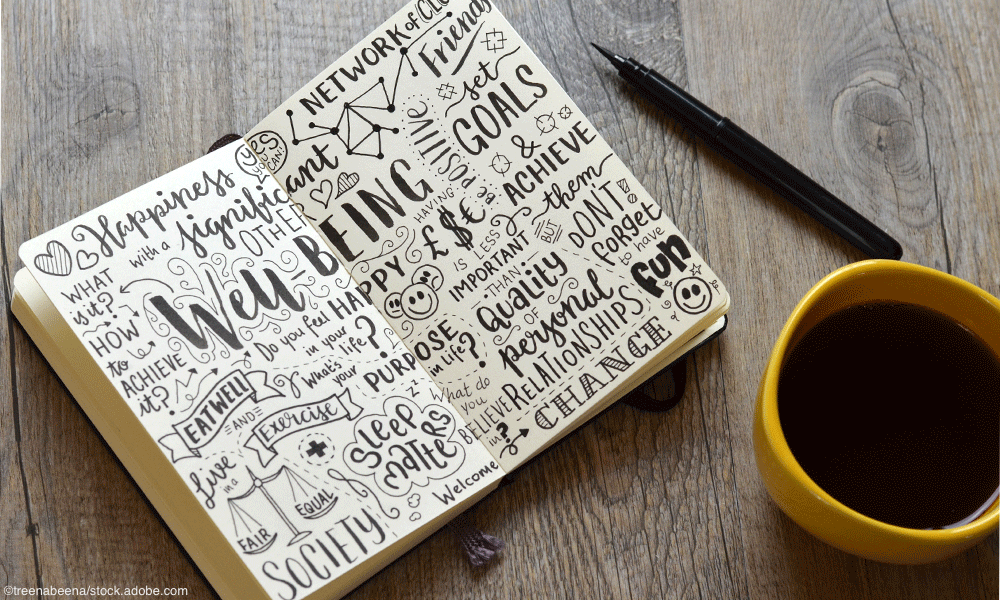 yes
you
CAN!
Happiness
with a significant
OTHER
WHAT
is it?
Well-BEING
HOW
to
ACHIEVE
it?
Do you feel HAPPY
in your
life?
What's
your
PURPOSE
in life?
EAT WELL
AND
Exercise
zzz
SLEEP
MatteRS
Live
in a
FAIR
EQUAL
SOCIETY
Welcome
CHANGE
NETWORK of
Friends
BE POSITIVE
BE POSITIVE
set
GOALS
&
ACHIEVE
them
HAVING
£$€
IS LESS
IMPORTANT
THAN
QUALITY
OF
personal
RELATIONSHIPS
BUT
DON'T
forget
to have
FUN
What do
you
BELIEVE
in?
©treenabeena/stock.adobe.com